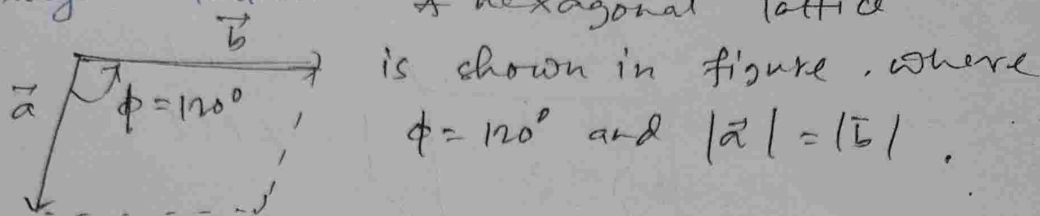 A hexagonal lattice
b⃗
is shown in figure. where
a⃗
ϕ = 120°
ϕ = 120° and |a⃗| = |b⃗|.